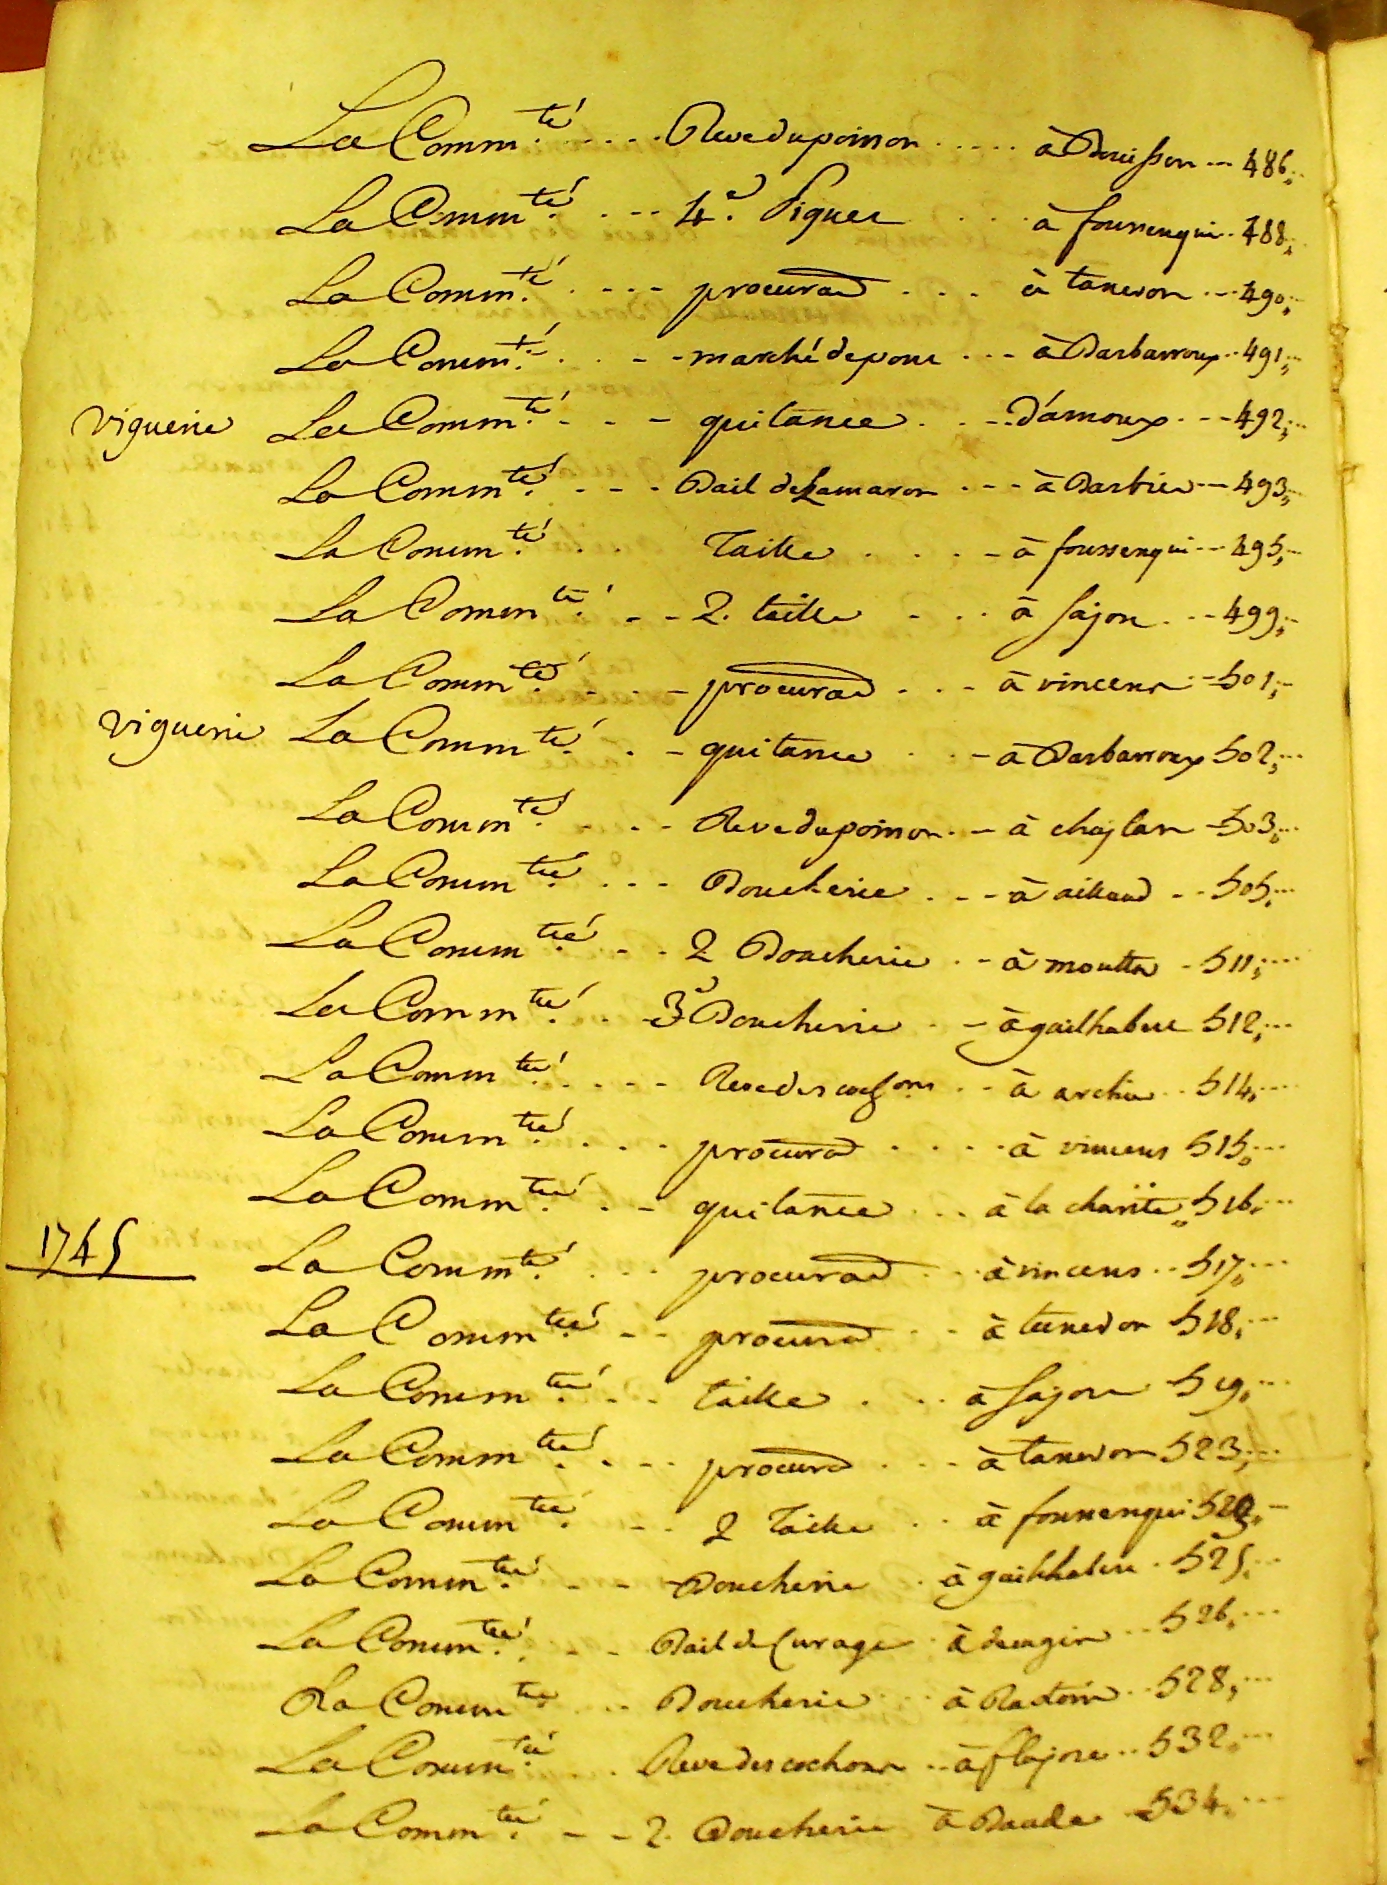 La Comm.té .... Reve du poisson ..... à Bouisson ... 486
La Comm.té ... 4e. Piguer ... à foussenqui . 488
La Comm.té .... procura᷉o ... à tanedon ... 490
La Comm.té . . - - marché de pour ... à Barbarroux .. 491
viguerie La Comm.té - - - quitance . . - D'amoux . - - 492
La Comm.té . - - . Bail de Lamaron . - - à Barbier -- 493
La Comm.té . . Taille . . . - à foussenqui -- 495
La Comm.té - - 2. taille - . . à sajon . -- 499
La Comm.té . - . - procurao . . - à vincens - 501
viguerie La Comm.té . - quitance . - à Barbarroux 502
La Comm.té . . - Reve du poisson . - à chaylan 503
La Comm.té . . - Boucherie . - - à aillaud - - 505
La Comm.té - - . 2 Boucherie . - à moutta - 511
La Comm.té . . 3e Boucherie . - à gailhabert 512
La Comm.té . . . - - Reve des cochons . . - à archier . . 514
La Comm.té . . . - procurao . . . . . à vincens 515
La Comm.té . . - quitance . . . à la charité 516
1745 La Comm.té . . . . procurao . . . à vincens . . 517
La Comm.té - - procurao . . - à tanedon 518
La Comm.té . - . taille . . . à sajon 519
La Comm.té . . - - procurao . . . - à tanedon 523
La Comm.té . - - . 2 Taille . . à foussenqui
La Comm.té . - - Boucherie . à gailhabert . 525
La Comm.té . - - Bail de Curage . à daugin . . 526
La Comm.té . . . Boucherie . . à Rastoin . . 528
La Comm.té . Reve des cochons . . à flajore . . 532
La Comm.té . - - 2. Boucherie à Baude 534